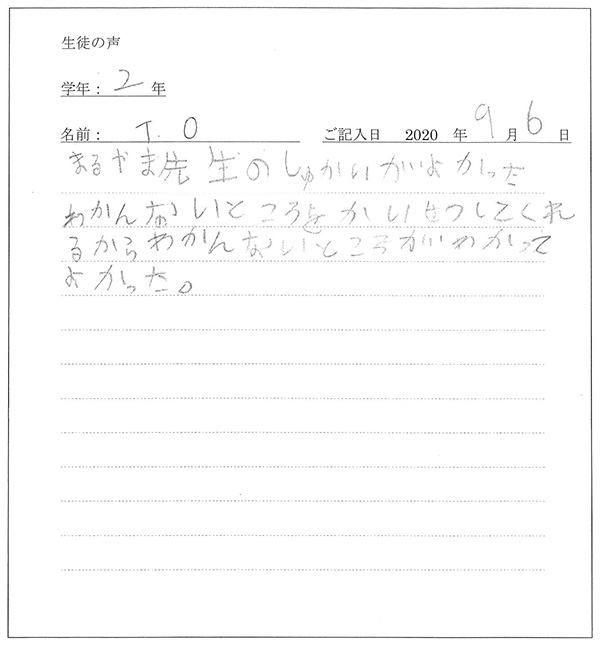 生徒の声
学年： 2 年
名前： T. O ご記入日 2020 年 9 月 6 日
まるやま先生のしゅかいがよかった
わかんないところをかいせつしてくれ
るからわかんないところがわかって
よかった。